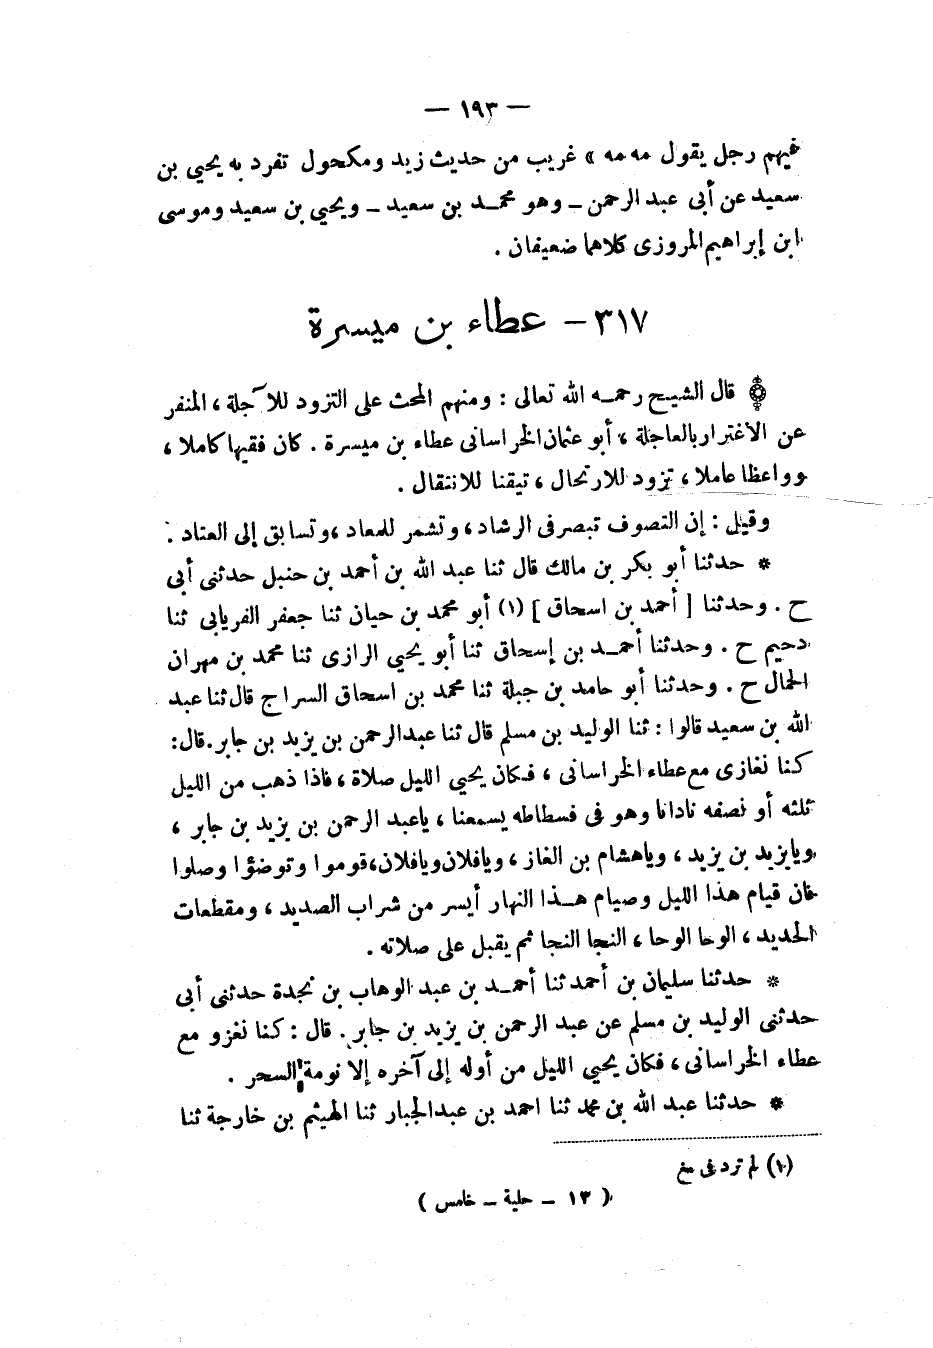 — ١٩٣ —
فيهم رجل يقول مه مه » غريب من حديث زيد ومكحول تفرد به يحيي بن
سعيد عن أبى عبد الرحمن ــ وهو محمد بن سعيد ــ ويحيي بن سعيد وموسى
ابن إبراهيم المروزى كلاهما ضعيفان .
٣١٧ – عطاء بن ميسرة
قال الشيخ رحمه الله تعالى : ومنهم المحث على التزود للآجلة ، المنفر
عن الاغترار بالعاجلة ، أبو عثمان الخراسانى عطاء بن ميسرة . كان فقيها كاملا ،
وواعظا عاملا ، تزود للارتحال ، تيقنا للانتقال .
وقيل : إن التصوف تبصر فى الرشاد ، وتشمر للمعاد ، وتسابق إلى العتاد .
* حدثنا أبو بكر بن مالك قال ثنا عبد الله بن أحمد بن حنبل حدثنى أبى
ح . وحدثنا [ أحمد بن اسحاق ] (١) أبو محمد بن حيان ثنا جعفر الفريابى ثنا
دحيم ح . وحدثنا أحمد بن إسحاق ثنا أبو يحيي الرازى ثنا محمد بن مهران
الحمال ح . وحدثنا أبو حامد بن جبلة ثنا محمد بن اسحاق السراج قال ثنا عبد
الله بن سعيد قالوا : ثنا الوليد بن مسلم قال ثنا عبدالرحمن بن يزيد بن جابر . قال :
كنا نغازى مع عطاء الخراسانى ، فكان يحيي الليل صلاة ، فاذا ذهب من الليل
ثلثه أو نصفه نادانا وهو فى فسطاطه يسمعنا ، ياعبد الرحمن بن يزيد بن جابر ،
ويايزيد بن يزيد ، وياهشام بن الغاز ، ويافلان ويافلان ، قوموا وتوضؤا وصلوا
فان قيام هذا الليل وصيام هذا النهار أيسر من شراب الصديد ، ومقطعات
الحديد ، الوحا الوحا ، النجا النجا ثم يقبل على صلاته .
* حدثنا سليمان بن أحمد ثنا أحمد بن عبد الوهاب بن نجدة حدثنى أبى
حدثنى الوليد بن مسلم عن عبد الرحمن بن يزيد بن جابر . قال : كنا نغزو مع
عطاء الخراسانى ، فكان يحيي الليل من أوله إلى آخره إلا نومة السحر .
* حدثنا عبد الله بن محمد ثنا احمد بن عبدالجبار ثنا الهيثم بن خارجة ثنا
(١) لم ترد فى مغ
( ١٣ – حلية – خامس )